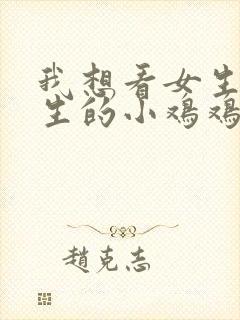 我想看女生
生的小鸡鸡
趙克志